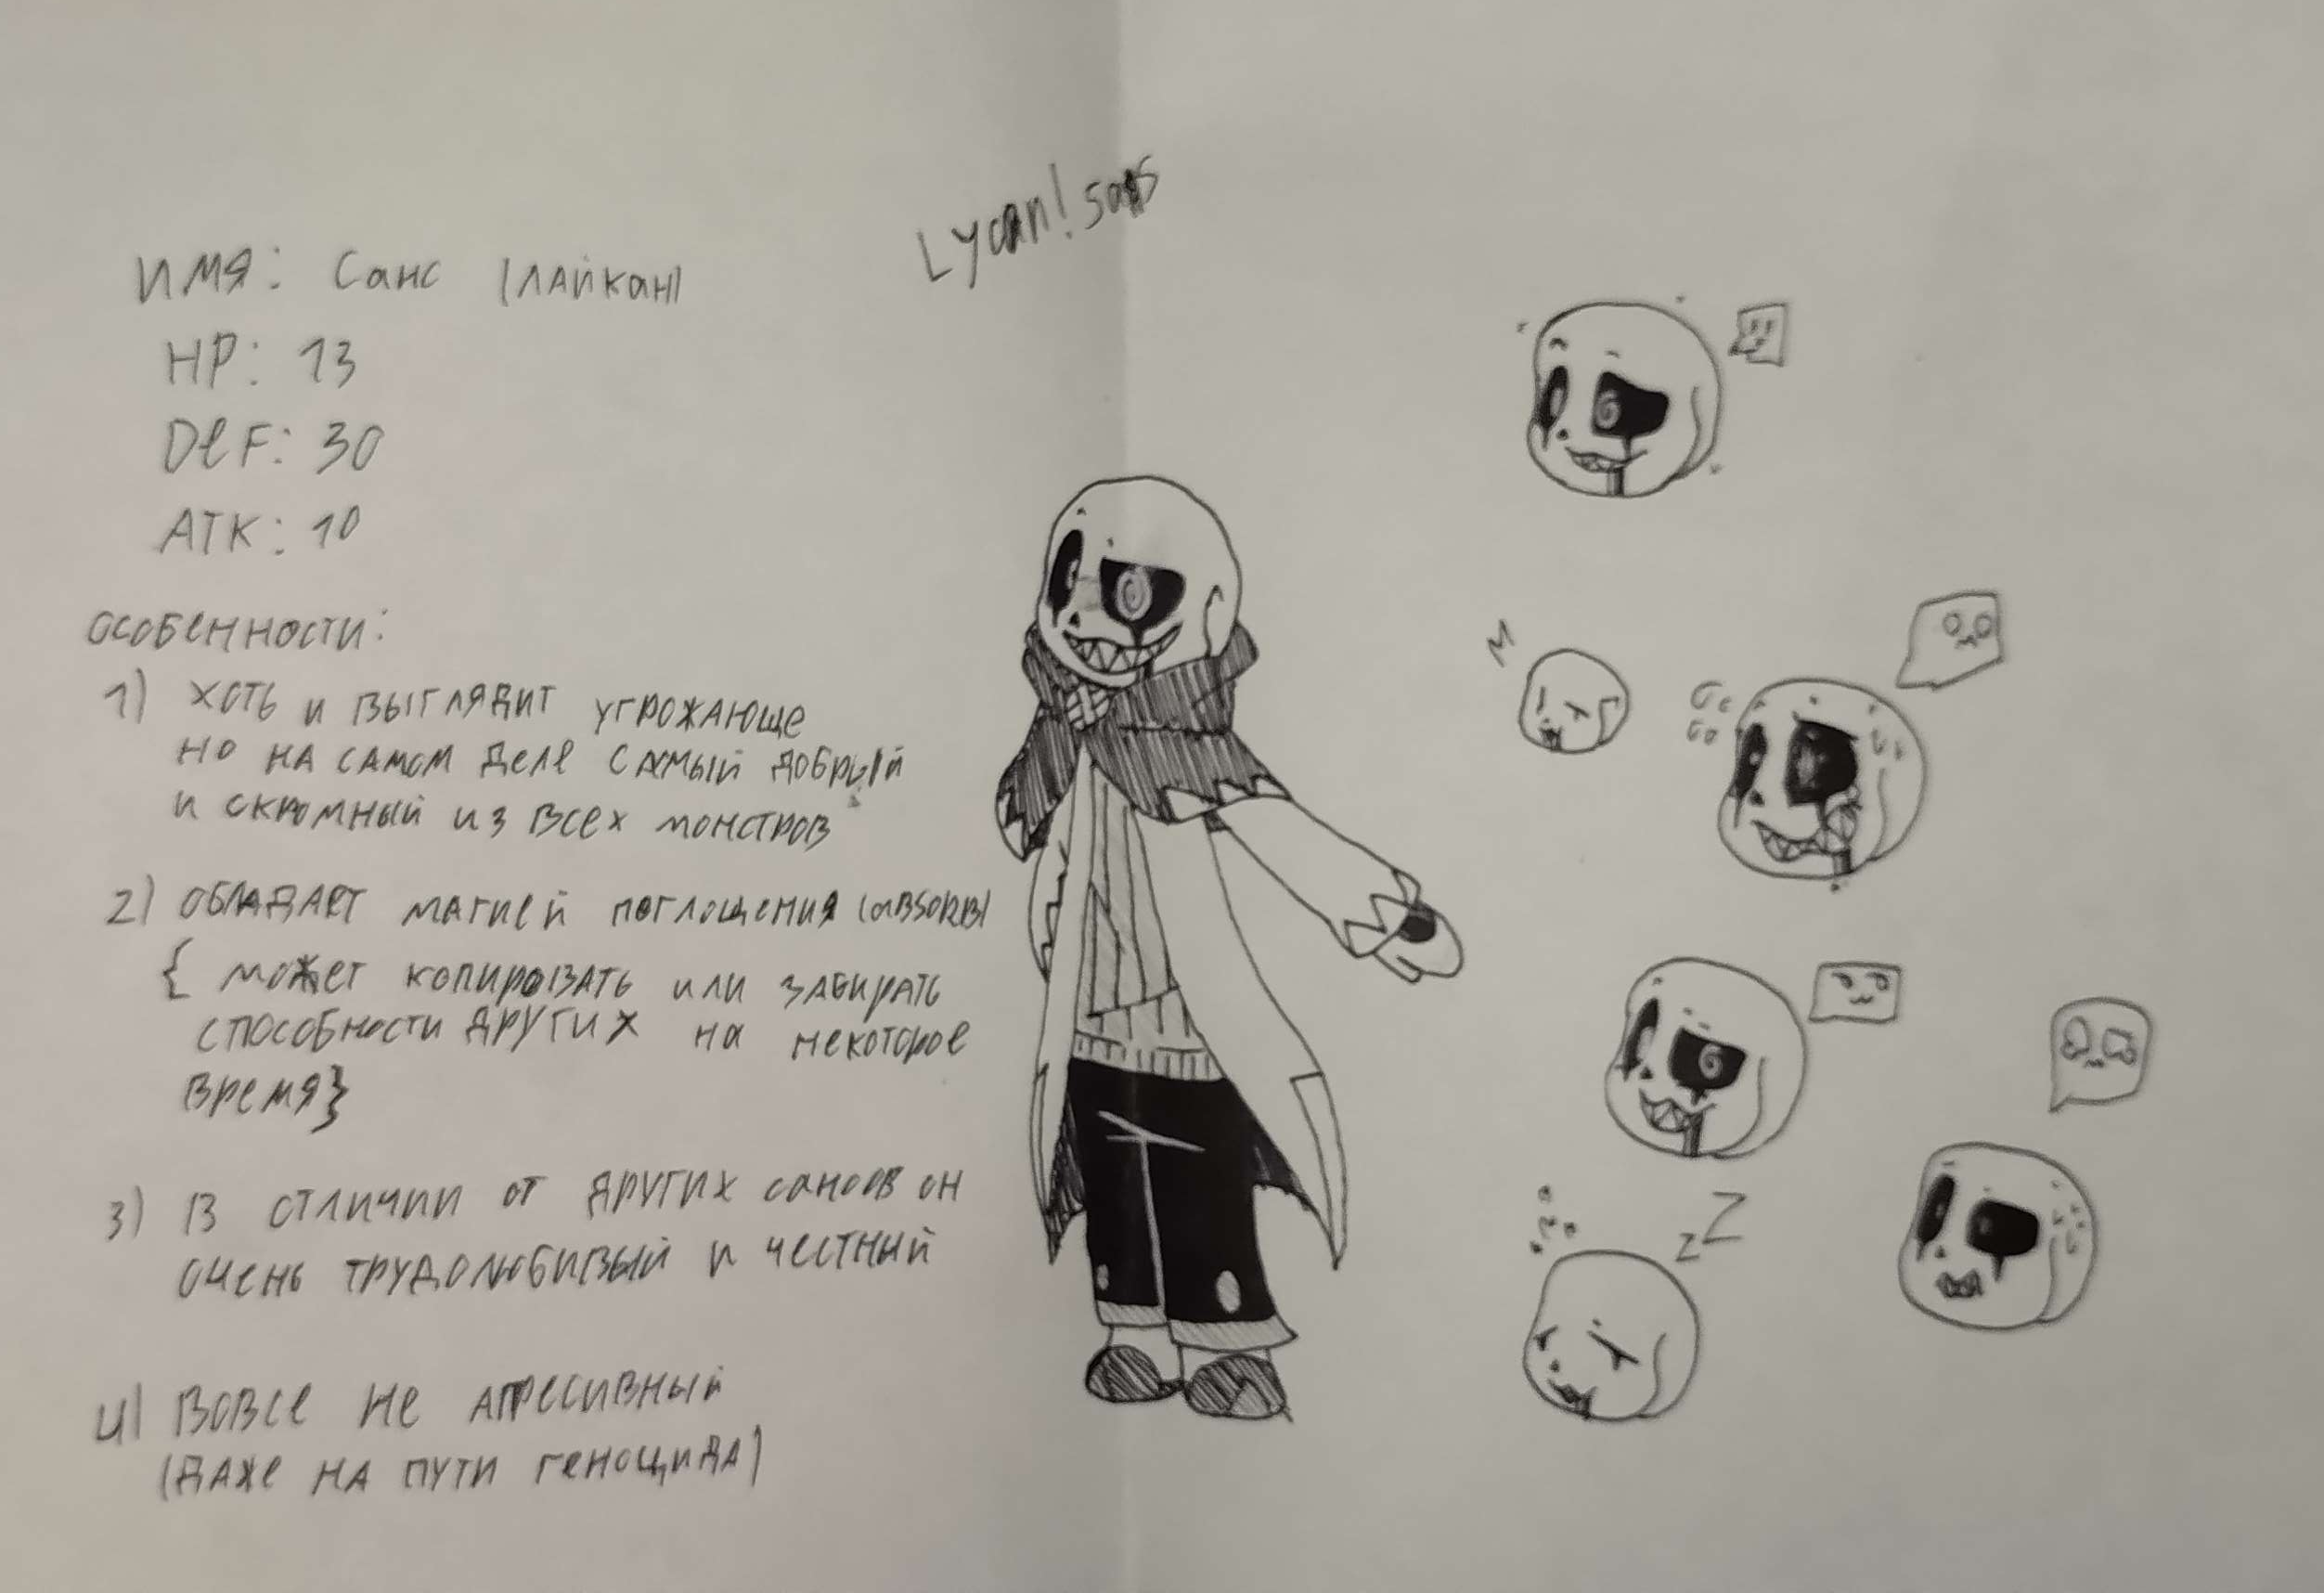 Lycan! sans
ИМЯ: Санс (ЛАЙКАН)
HP: 13
DeF: 30
ATK: 10
ОСОБЕННОСТИ:
1) ХОТЬ И ВЫГЛЯДИТ УГРОЖАЮЩЕ
НО НА САМОМ ДЕЛЕ САМЫЙ ДОБРЫЙ
И СКРОМНЫЙ ИЗ ВСЕХ МОНСТРОВ
2) ОБЛАДАЕТ МАГИЕЙ ПОГЛОЩЕНИЯ (ABSORB)
{ МОЖЕТ КОПИРОВАТЬ ИЛИ ЗАБИРАТЬ
СПОСОБНОСТИ ДРУГИХ НА НЕКОТОРОЕ
ВРЕМЯ}
3) В ОТЛИЧИИ ОТ ДРУГИХ САНСОВ ОН
ОЧЕНЬ ТРУДОЛЮБИВЫЙ И ЧЕСТНЫЙ
4) ВОВСЕ НЕ АГРЕСИВНЫЙ
(ДАЖЕ НА ПУТИ ГЕНОЦИДА)
z Z